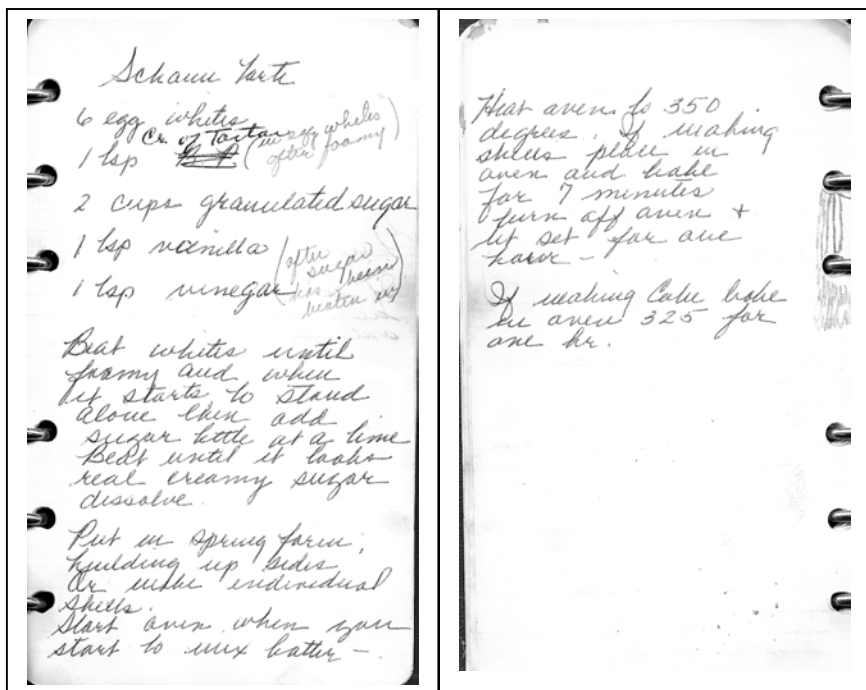 Schaum Torte
6 egg whites
Cr. of Tartar
1 tsp B.P. (in egg whites
after foamy)
2 cups granulated sugar
1 tsp vanilla (after
sugar
1 tsp vinegar has been
beaten in)
Beat whites until
foamy and when
it starts to stand
alone then add
sugar little at a time
Beat until it looks
real creamy sugar
dissolve.
Put in spring form,
building up sides
Or make individual
shells.
Start oven when you
start to mix batter –
Heat oven to 350
degrees. If making
shells place in
oven and bake
for 7 minutes
turn off oven +
let set for one
hour –
If making Cake bake
in oven 325 for
one hr.